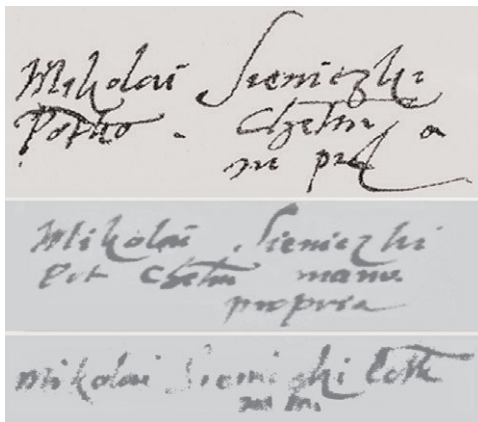 Mikolai Sieniczki
Potho. Chelm
mp
Mikolai Sieniczki
Pot Chelm manu
propria
Mikolai Sieniczki Poth
m m.